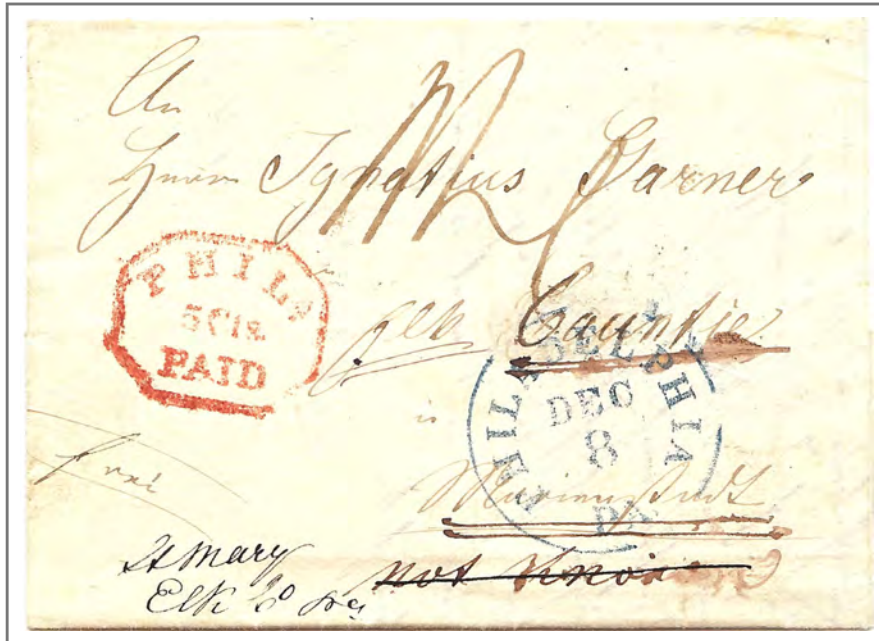 An
Herrn Ignatius Garner
PHILA
5 Cts
PAID
Elk Countie
in
PHILADELPHIA
DEC
8
Pa
Marienstadt
frei
St Mary
Elk Co
not Known